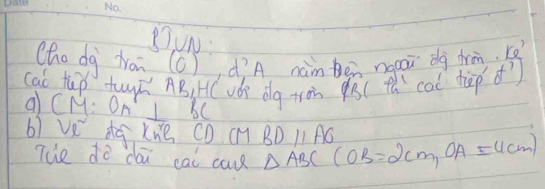 No.
BTVN:
Cho đg tròn (O), đ' A nằm bên ngoài đg tròn. Kẻ
các tiếp tuyến AB, HC với đg tròn (BC là các tiếp đ')
a) CM: OA ⊥ BC
b) Vẽ đg kính CD CM BD // AO
độ dài các cạnh Δ ABC (OB = 2cm, OA = 4cm)